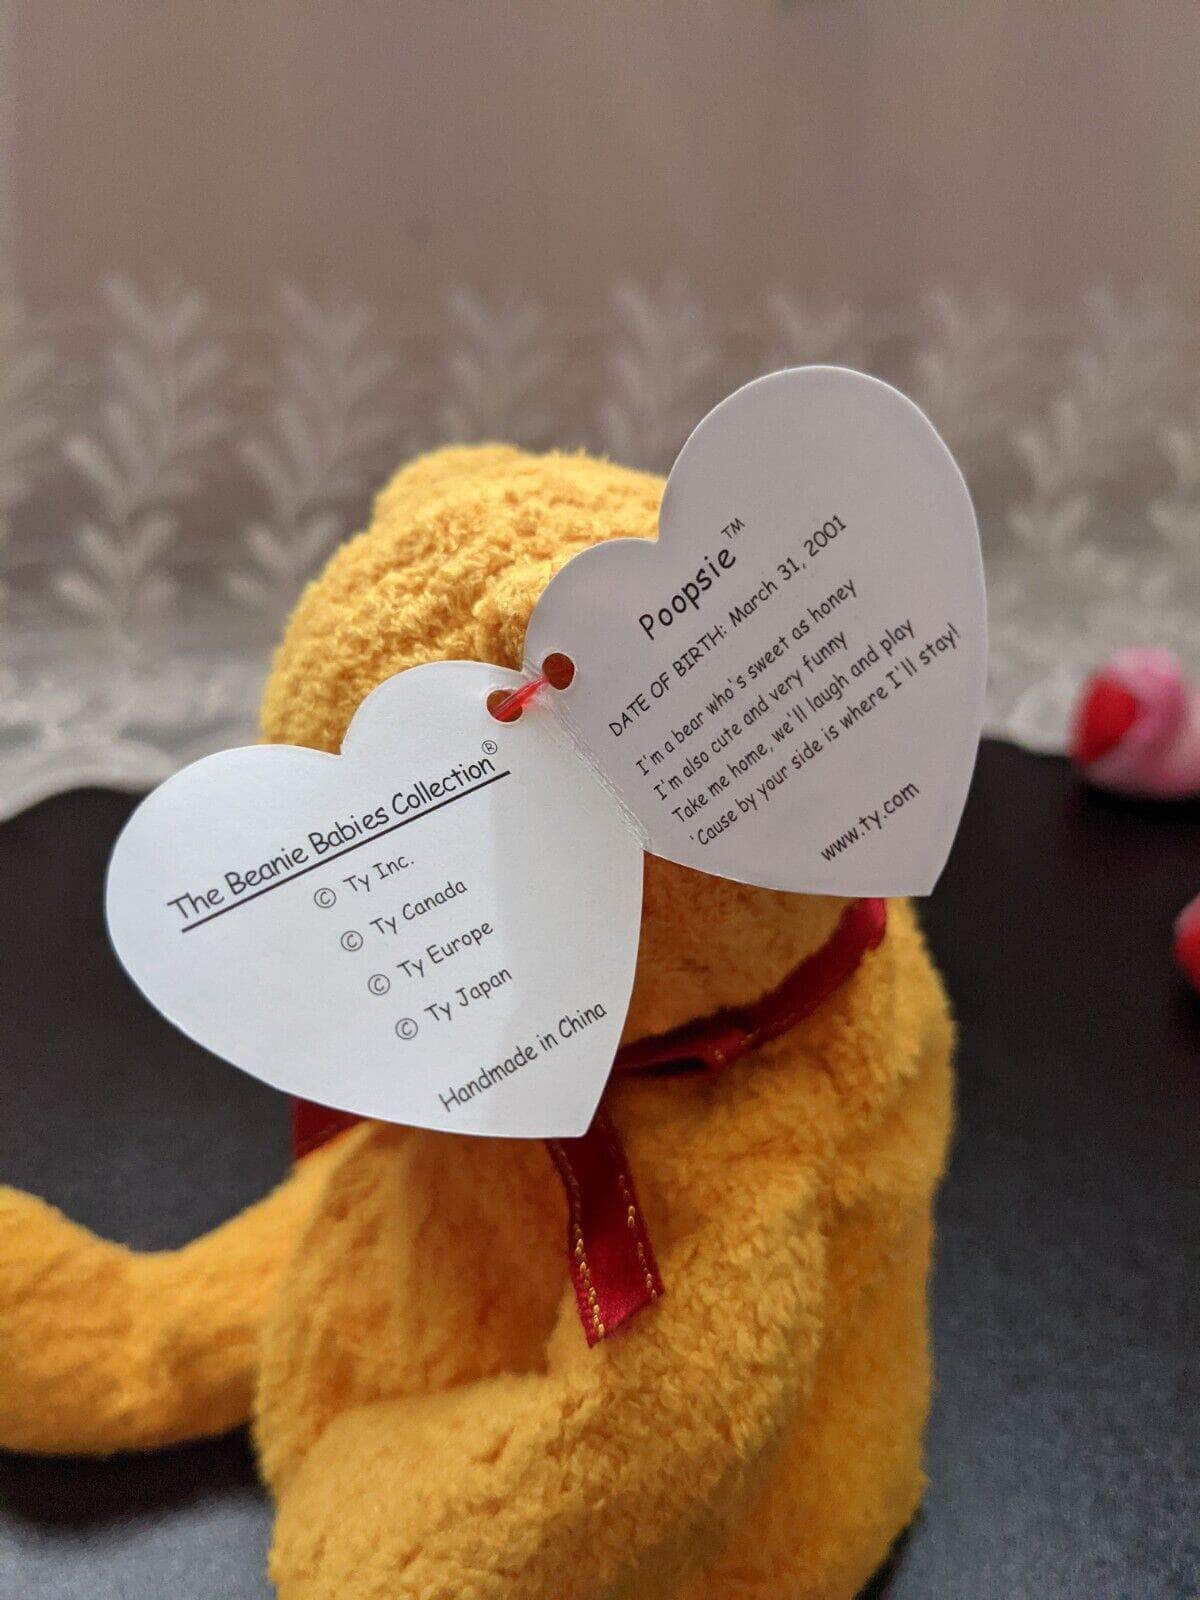 The Beanie Babies Collection®
© Ty Inc.
© Ty Canada
© Ty Europe
© Ty Japan
Handmade in China
Poopsie™
DATE OF BIRTH: March 31, 2001
I'm a bear who's sweet as honey
I'm also cute and very funny
Take me home, we'll laugh and play
'Cause by your side is where I'll stay!
www.ty.com